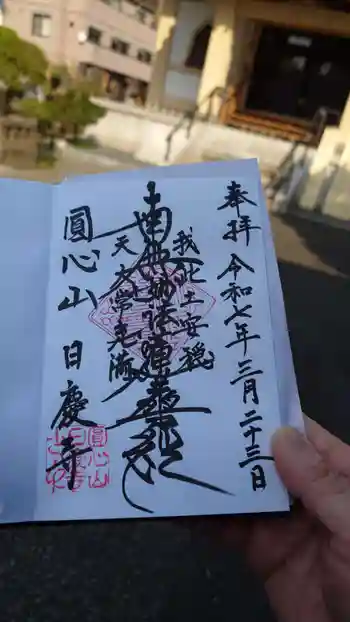 奉拝
令和七年三月二十三日
我此土安穏
南無妙法蓮華経
天人常充満
圓心山
日慶寺